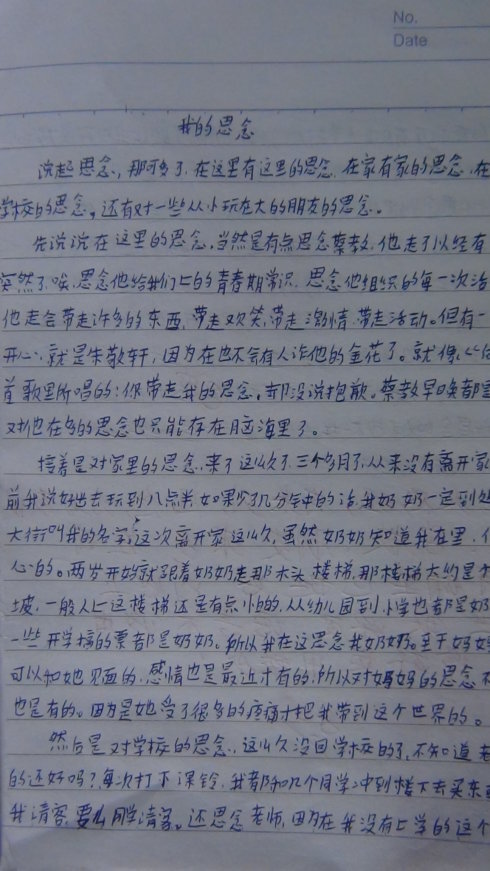 No.
Date
我的思念
说起思念,那可多了,在这里有这里的思念,在家有家的思念,在
学校的思念,还有对一些从小玩在大的朋友的思念。
先说说在这里的思念,当然是有点思念蔡教,他走了以经有
突然了。唉,思念他给我们上的青春期常识,思念他组织的每一次活
他走会带走许多的东西,带走欢笑,带走激情,带走活动。但有一
开心、就是朱敬轩,因为在也不会有人诈他的金花了。就像
首歌里所唱的:你带走我的思念,却没说抱歉。蔡教早唤都
对他在多的思念也只能存在脑海里了。
接着是对家里的思念,来了这么久了,三个多月了,从来没有离开家
前我说好出去玩到八点半如果少了几分钟的话,我奶奶一定到处
大街叫我的名字,这次离开家这么久,虽然奶奶知道我在里,
心的。两岁开始就跟着奶奶走那木头楼梯,那楼梯大约是
坡,一般人上这楼梯还是有点怕的,从幼儿园到小学也都是奶
一些开学搞的票都是奶奶。所以我在这思念我奶奶。至于妈妈
可以和她见面的,感情也是最近才有的,所以对妈妈的思念
也是有的。因为是她受了很多的疼痛才把我带到这个世界的。
然后是对学校的思念,这么久没回学校的了,不知道
的还好吗?每次打下课铃,我都和几个同学冲到楼下去买东
我请客,要么同学请客。还思念老师,因为在我没有上学的这个